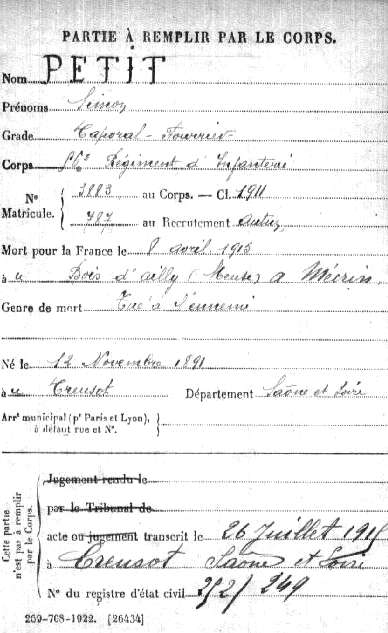 PARTIE À REMPLIR PAR LE CORPS.
Nom PETIT
Prénoms Simon
Grade Caporal-Fourrier
Corps Régiment d'Infanterie
Nº Matricule. { 3883 au Corps. — Cl. 1911
787 au Recrutement Autun
Mort pour la France le 8 avril 1915
à u Bois d'ailly (Meuse) a Mécrin
Genre de mort Tué à l'ennemi
Né le 12 Novembre 1891
à u Creusot Département Saône et Loire
Arrt municipal (pr Paris et Lyon),
à défaut rue et Nº.
Cette partie n'est pas à remplir par le Corps.
Jugement rendu le
par le Tribunal de
acte ou jugement transcrit le 26 Juillet
à Creusot Saône et Loire
Nº du registre d'état civil 249
269-708-1922. [26434]